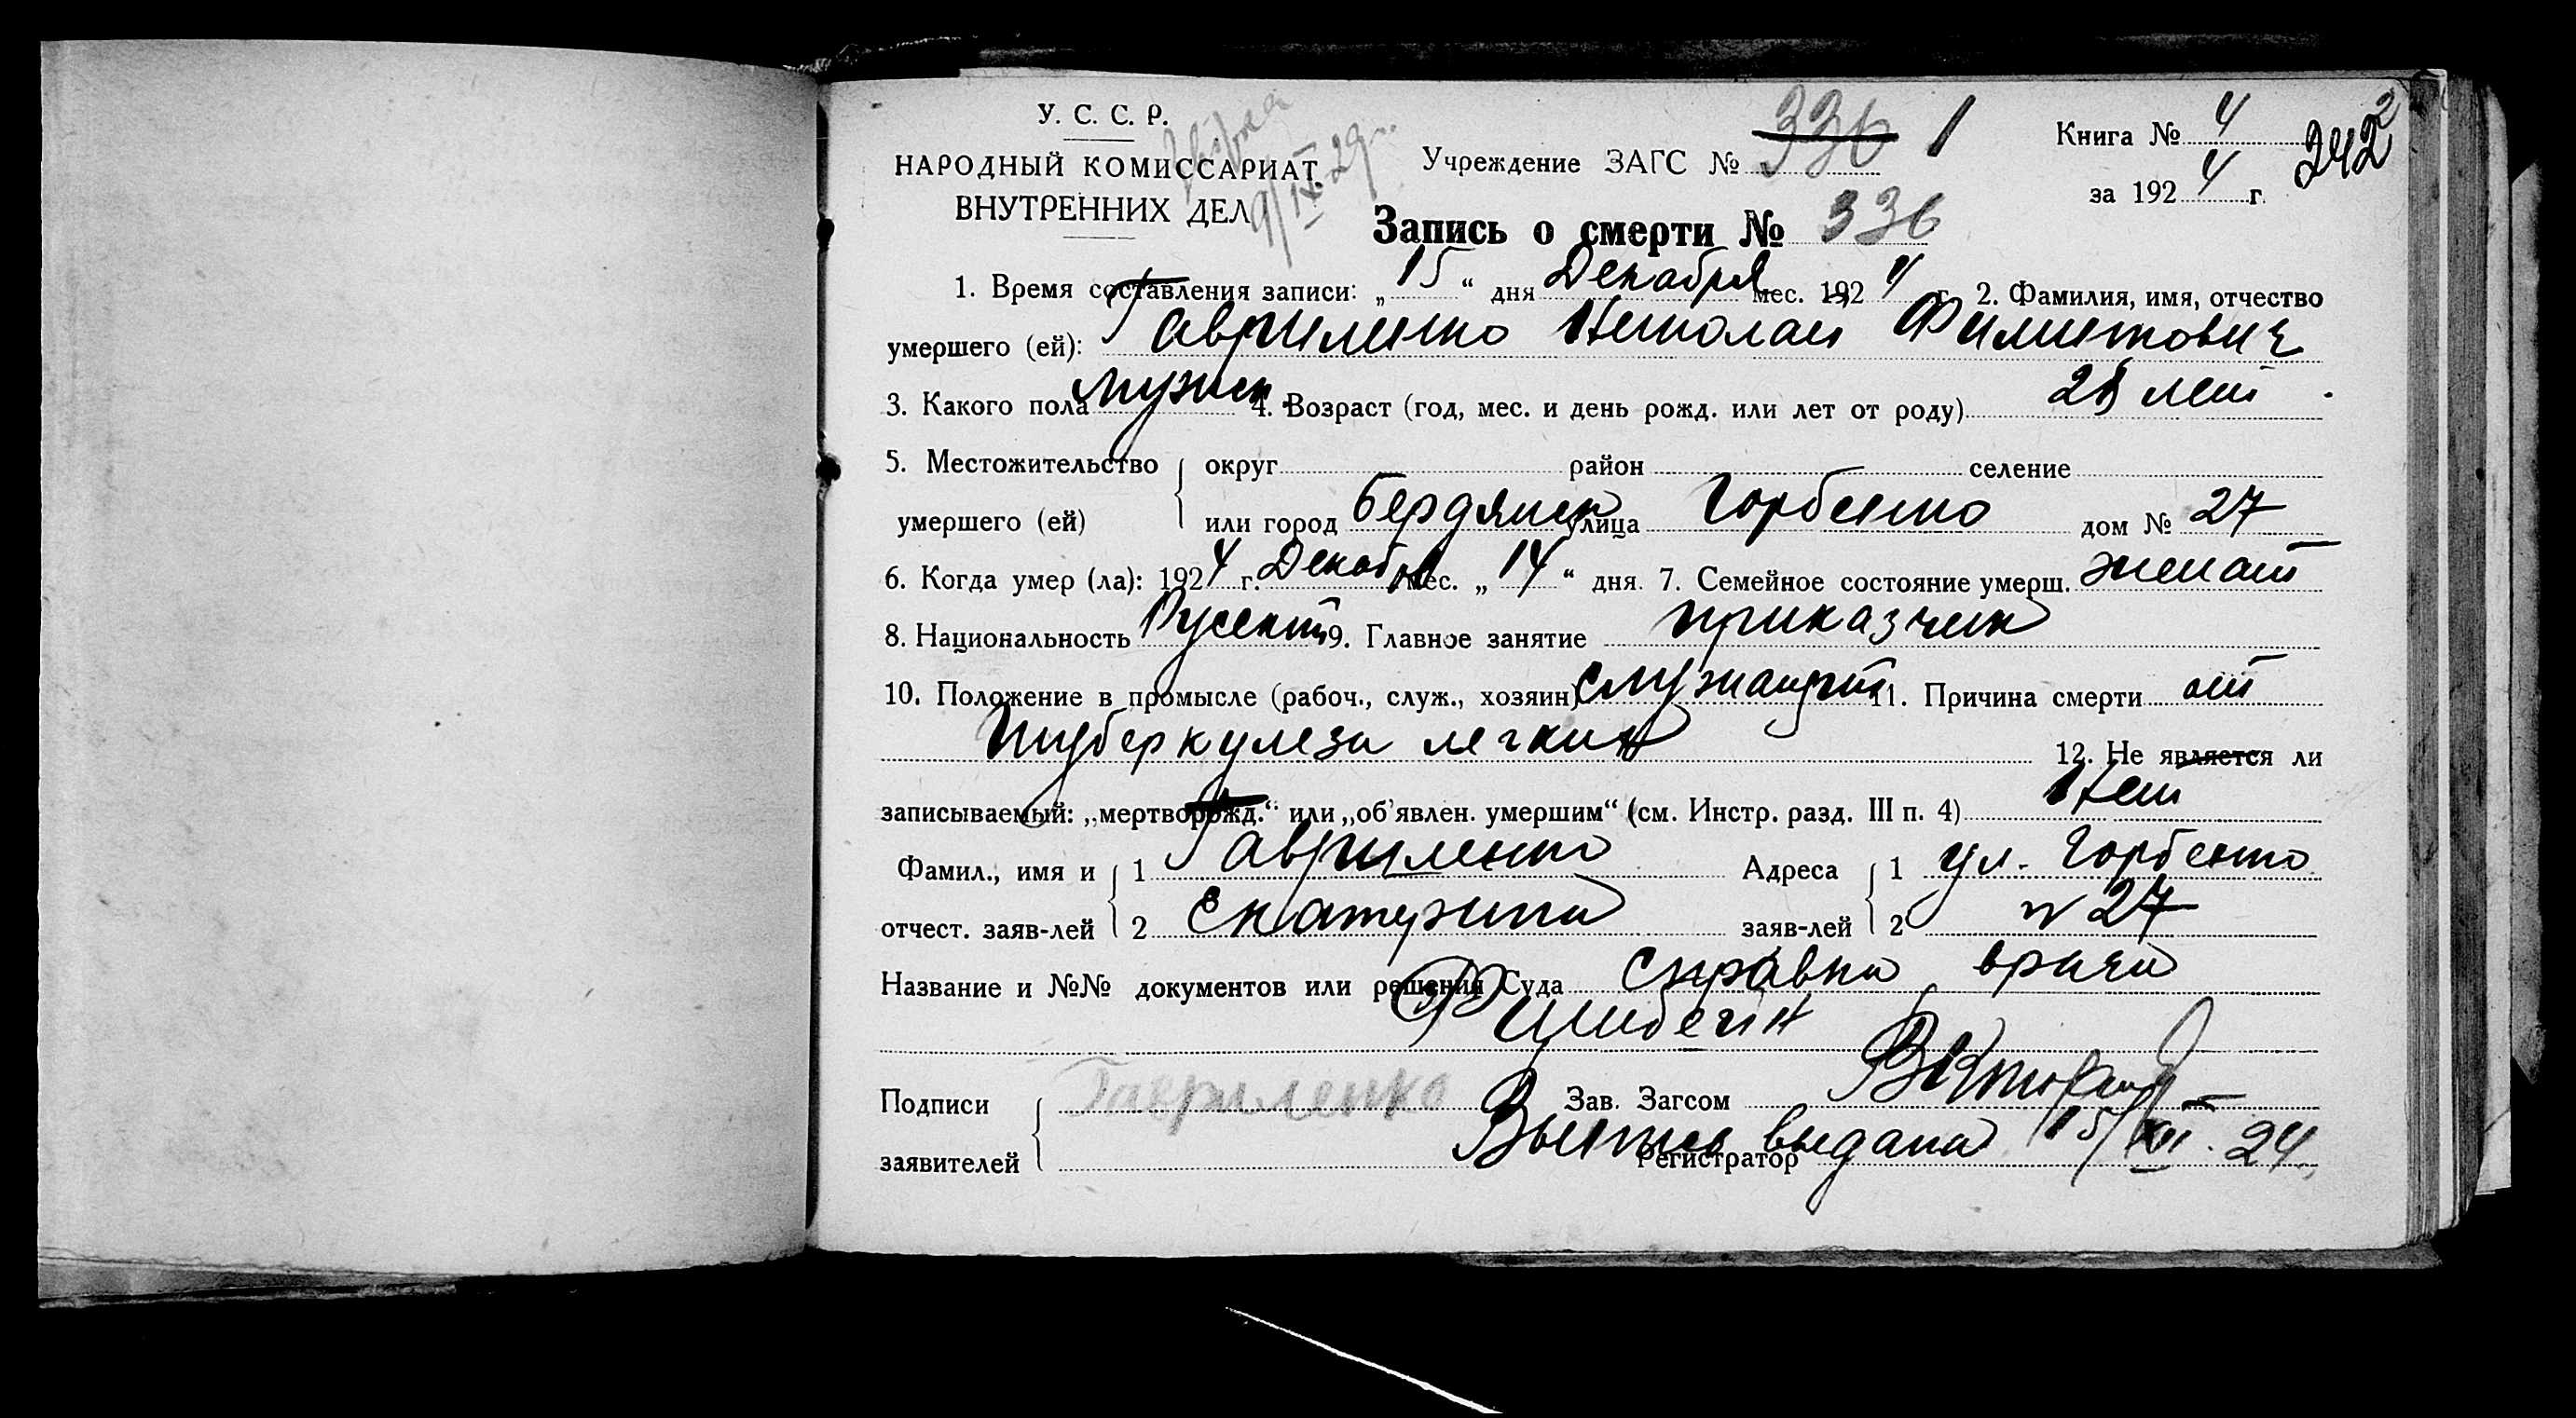 У. С. С. Р.
НАРОДНЫЙ КОМИССАРИАТ
ВНУТРЕННИХ ДЕЛ
9/IX-29
Учреждение ЗАГС № 336 1
Книга № 4
за 1924 г.
242
2
Запись о смерти № 336
1. Время составления записи: „15“ дня Декабря мес. 1924 г. 2. Фамилия, имя, отчество
умершего (ей): Гавриленко Николай Филиппович
3. Какого пола мужск. 4. Возраст (год, мес. и день рожд. или лет от роду) 28 лет.
5. Местожительство округ район селение
умершего (ей) или город Бердянск улица Горбенко дом № 27
6. Когда умер (ла): 1924 г. Декабря мес. „14“ дня. 7. Семейное состояние умерш. женат
8. Национальность Русский 9. Главное занятие приказчик
10. Положение в промысле (рабоч., служ., хозяин) служащий 11. Причина смерти от
туберкулеза легких 12. Не является ли
записываемый: „мертворожд.“ или „об’явлен. умершим“ (см. Инстр. разд. III п. 4) Нет
Фамил., имя и 1 Гавриленко Адреса 1 ул. Горбенко
отчест. заяв-лей 2 Екатерина заяв-лей 2 № 27
Название и №№ документов или решения Суда Справка врача
Подписи Гавриленко Зав. Загсом
заявителей Регистратор
Выпись выдана 15/XII-24